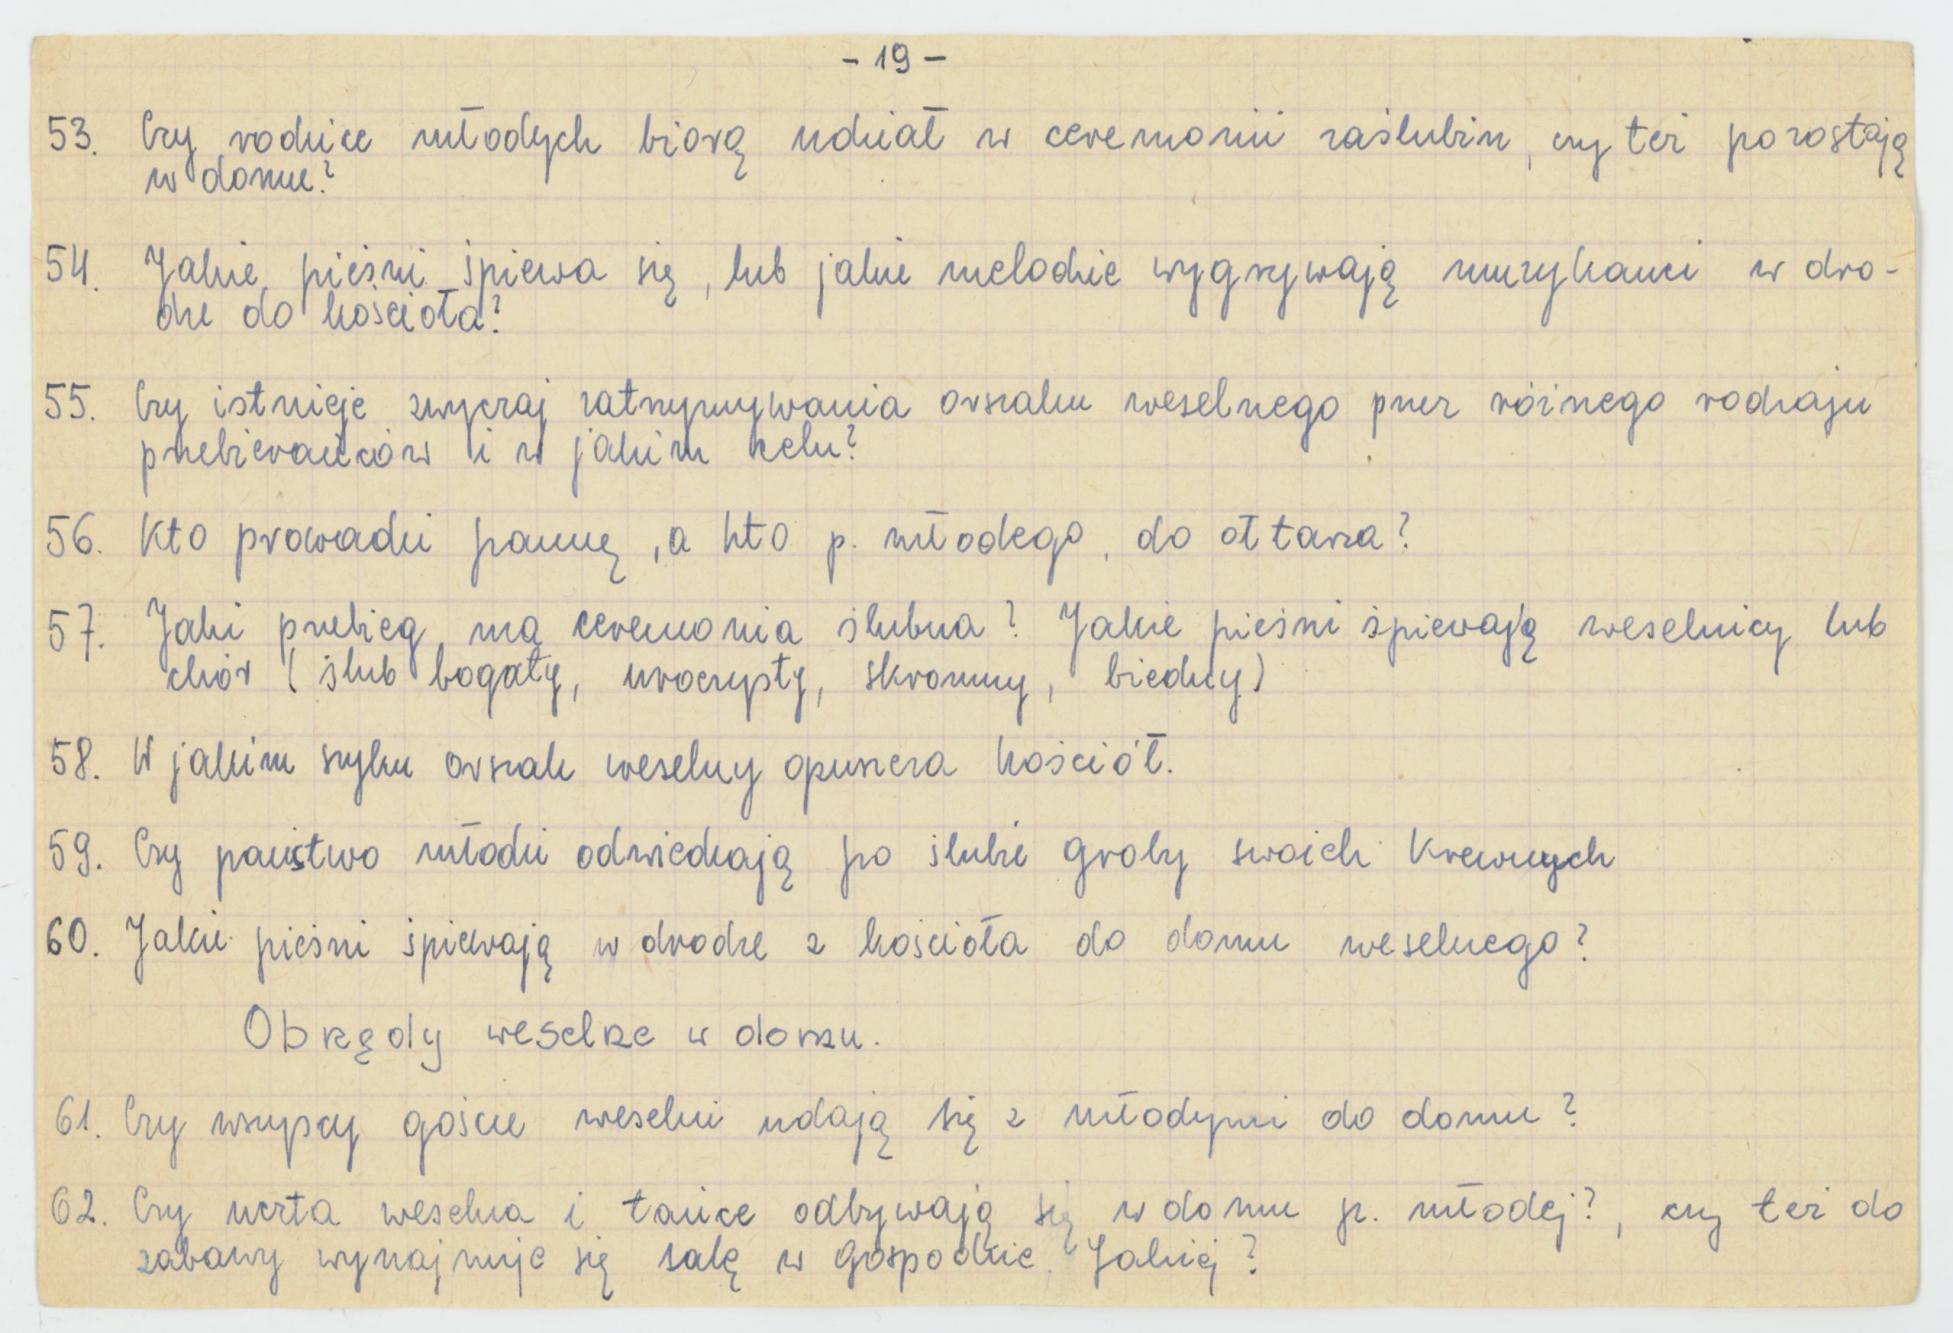 - 19 -
53. Czy rodzice młodych biorą udział w ceremonii zaślubin, czy też pozostają
w domu?
54. Jakie pieśni śpiewa się, lub jakie melodie wygrywają muzykanci w dro-
dze do kościoła?
55. Czy istnieje zwyczaj zatrzymywania orszaku weselnego przez różnego rodzaju
przebierańców i w jakim celu?
56. Kto prowadzi pannę, a kto p. młodego, do ołtarza?
57. Jaki przebieg ma ceremonia ślubna? Jakie pieśni śpiewają weselnicy lub
chór (ślub bogaty, uroczysty, skromny, biedny)
58. W jakim szyku orszak weselny opuszcza kościół.
59. Czy państwo młodzi odwiedzają po ślubie groby swoich krewnych
60. Jakie pieśni śpiewają w drodze z kościoła do domu weselnego?
Obrzędy weselne w domu.
61. Czy wszyscy goście weselni udają się z młodymi do domu?
62. Czy uczta weselna i tańce odbywają się w domu p. młodej?, czy też do
zabawy wynajmuje się salę w gospodzie. Jakiej?